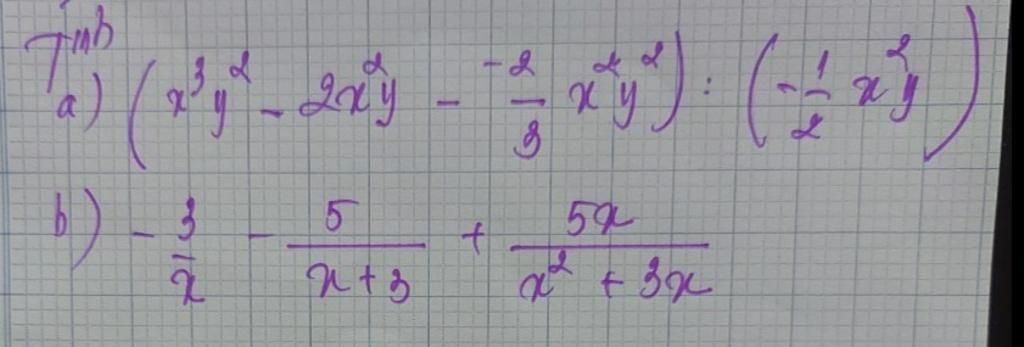 Tính
a) (x³y² - 2x²y - \frac{-2}{3} x²y²) : (-\frac{1}{2} x²y)
b) -\frac{3}{x} - \frac{5}{x+3} + \frac{5x}{x² + 3x}